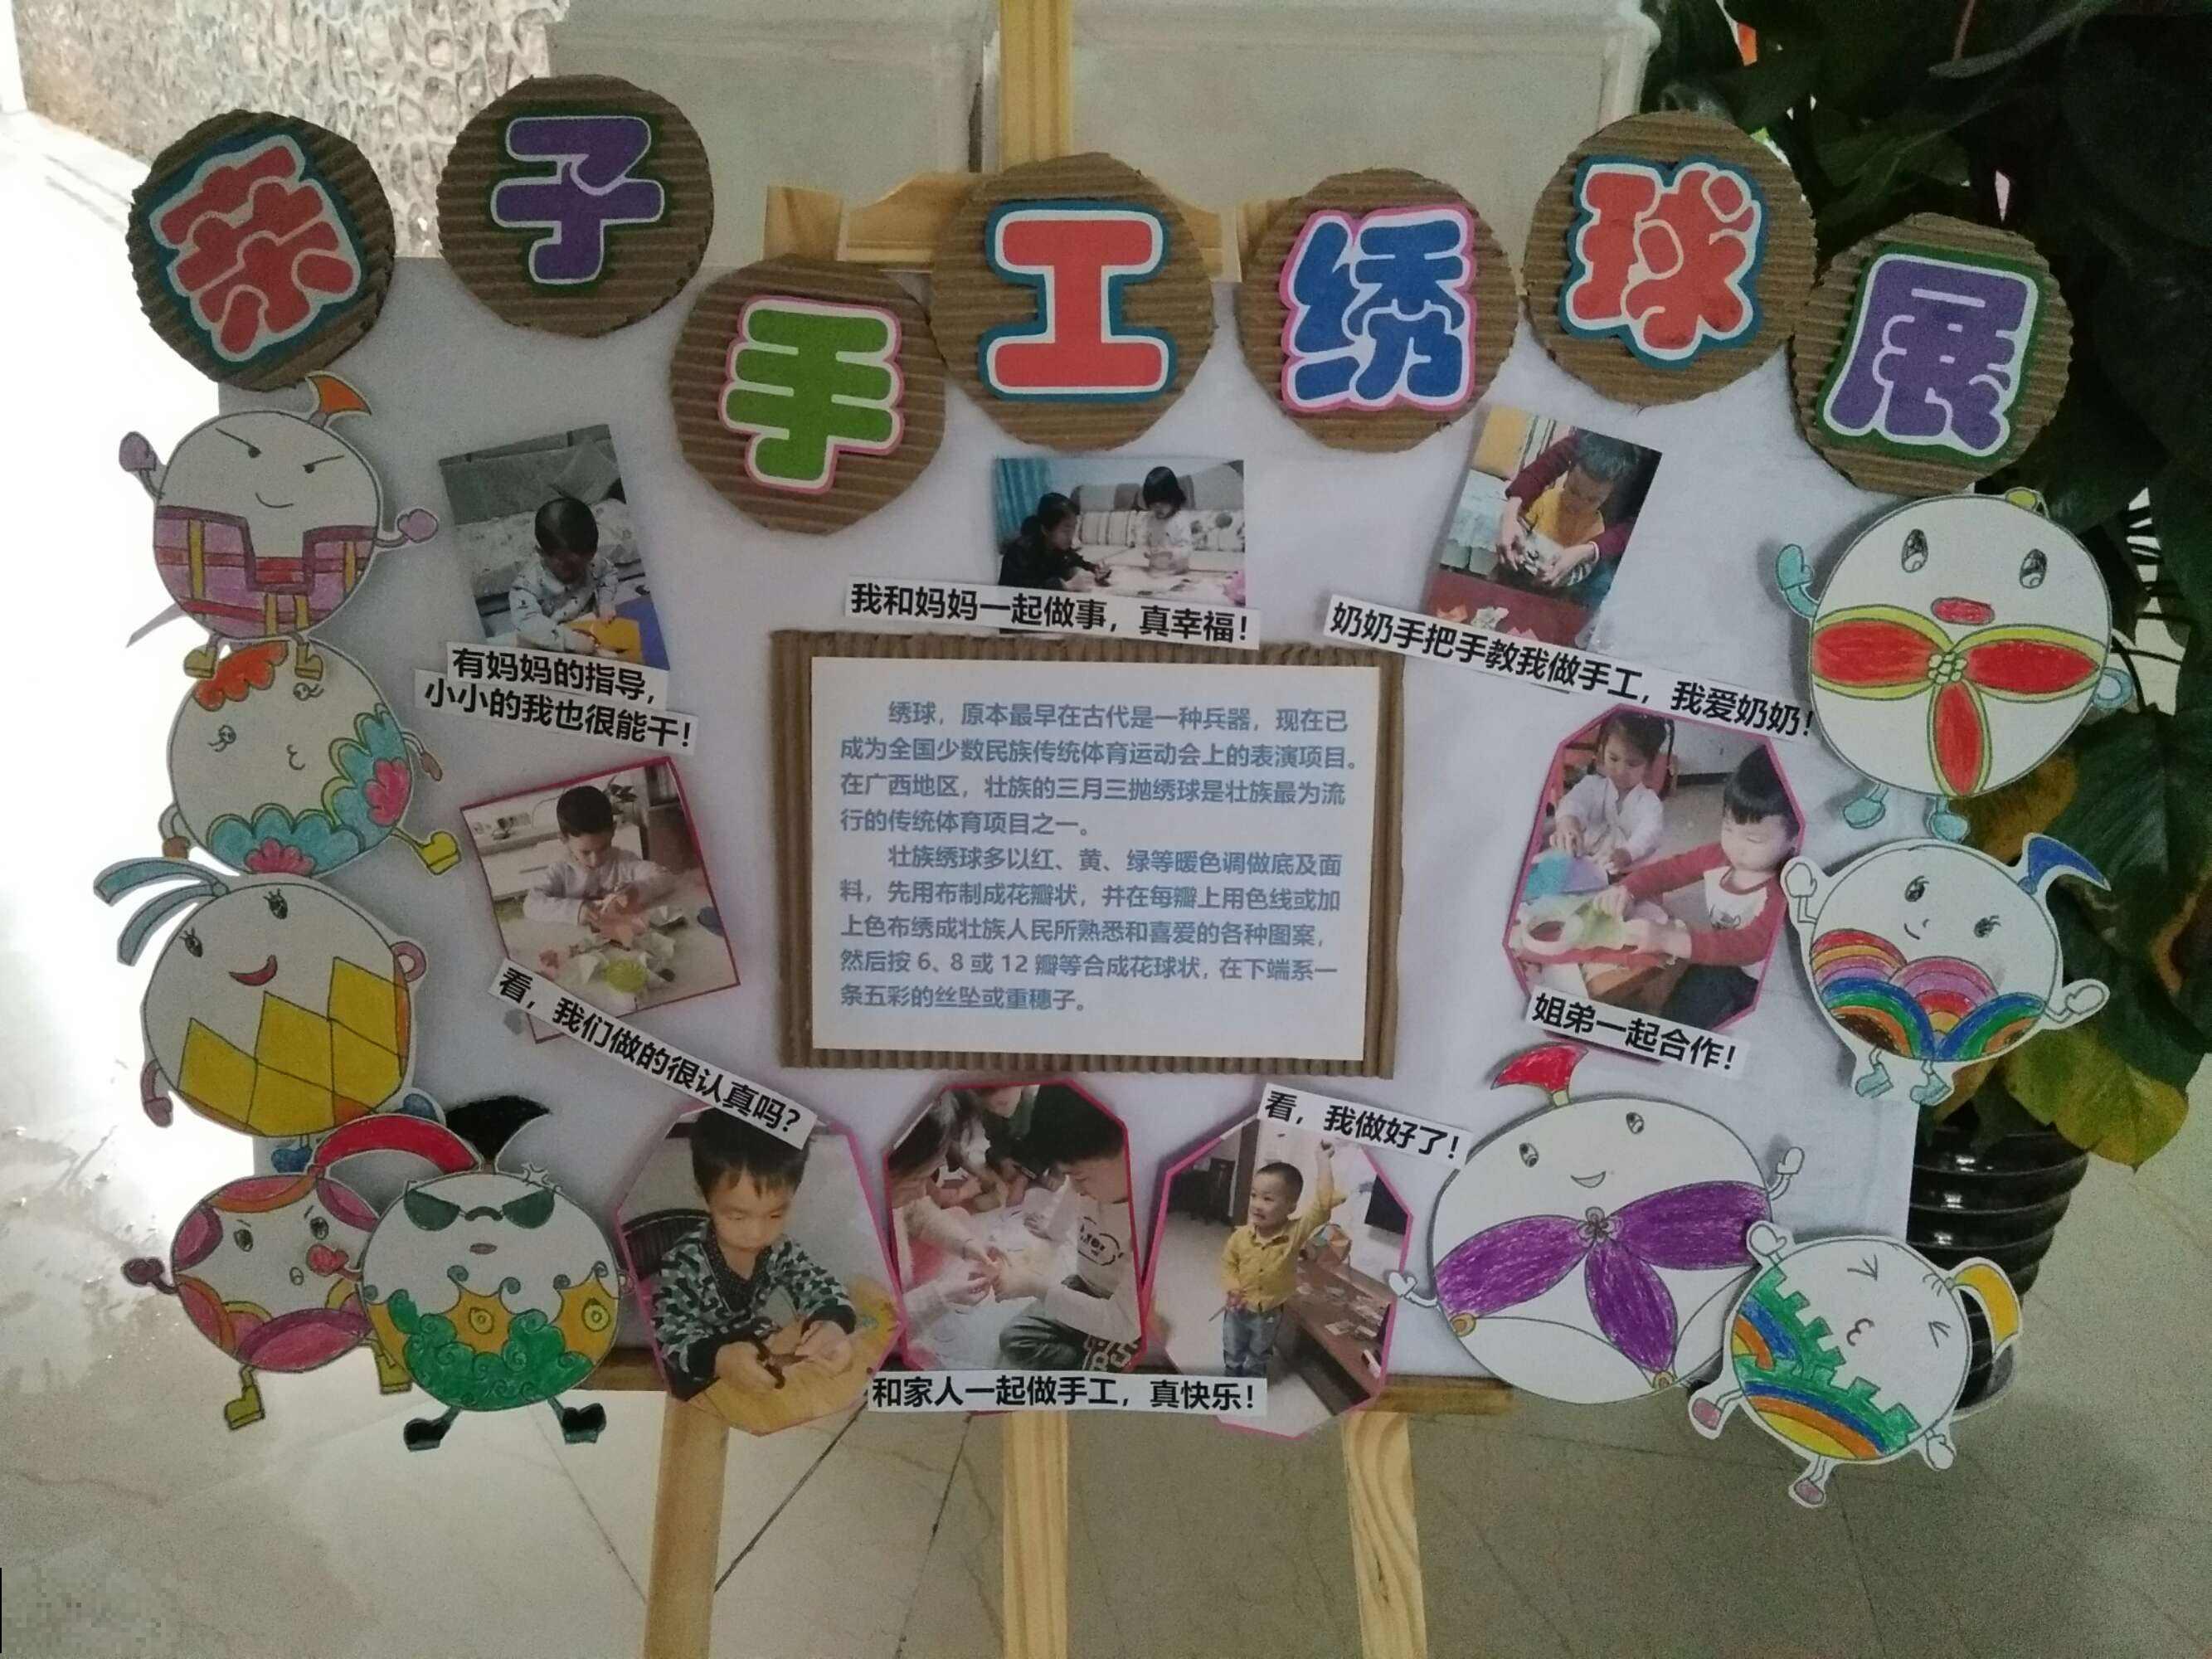 亲子手工绣球展
有妈妈的指导，
小小的我也很能干！
我和妈妈一起做事，真幸福！
奶奶手把手教我做手工，我爱奶奶！
绣球，原本最早在古代是一种兵器，现在已
成为全国少数民族传统体育运动会上的表演项目。
在广西地区，壮族的三月三抛绣球是壮族最为流
行的传统体育项目之一。
壮族绣球多以红、黄、绿等暖色调做底及面
料，先用布制成花瓣状，并在每瓣上用色线或加
上色布绣成壮族人民所熟悉和喜爱的各种图案，
然后按 6、8 或 12 瓣等合成花球状，在下端系一
条五彩的丝坠或重穗子。
看，我们做的很认真吗？
姐弟一起合作！
看，我做好了！
和家人一起做手工，真快乐！